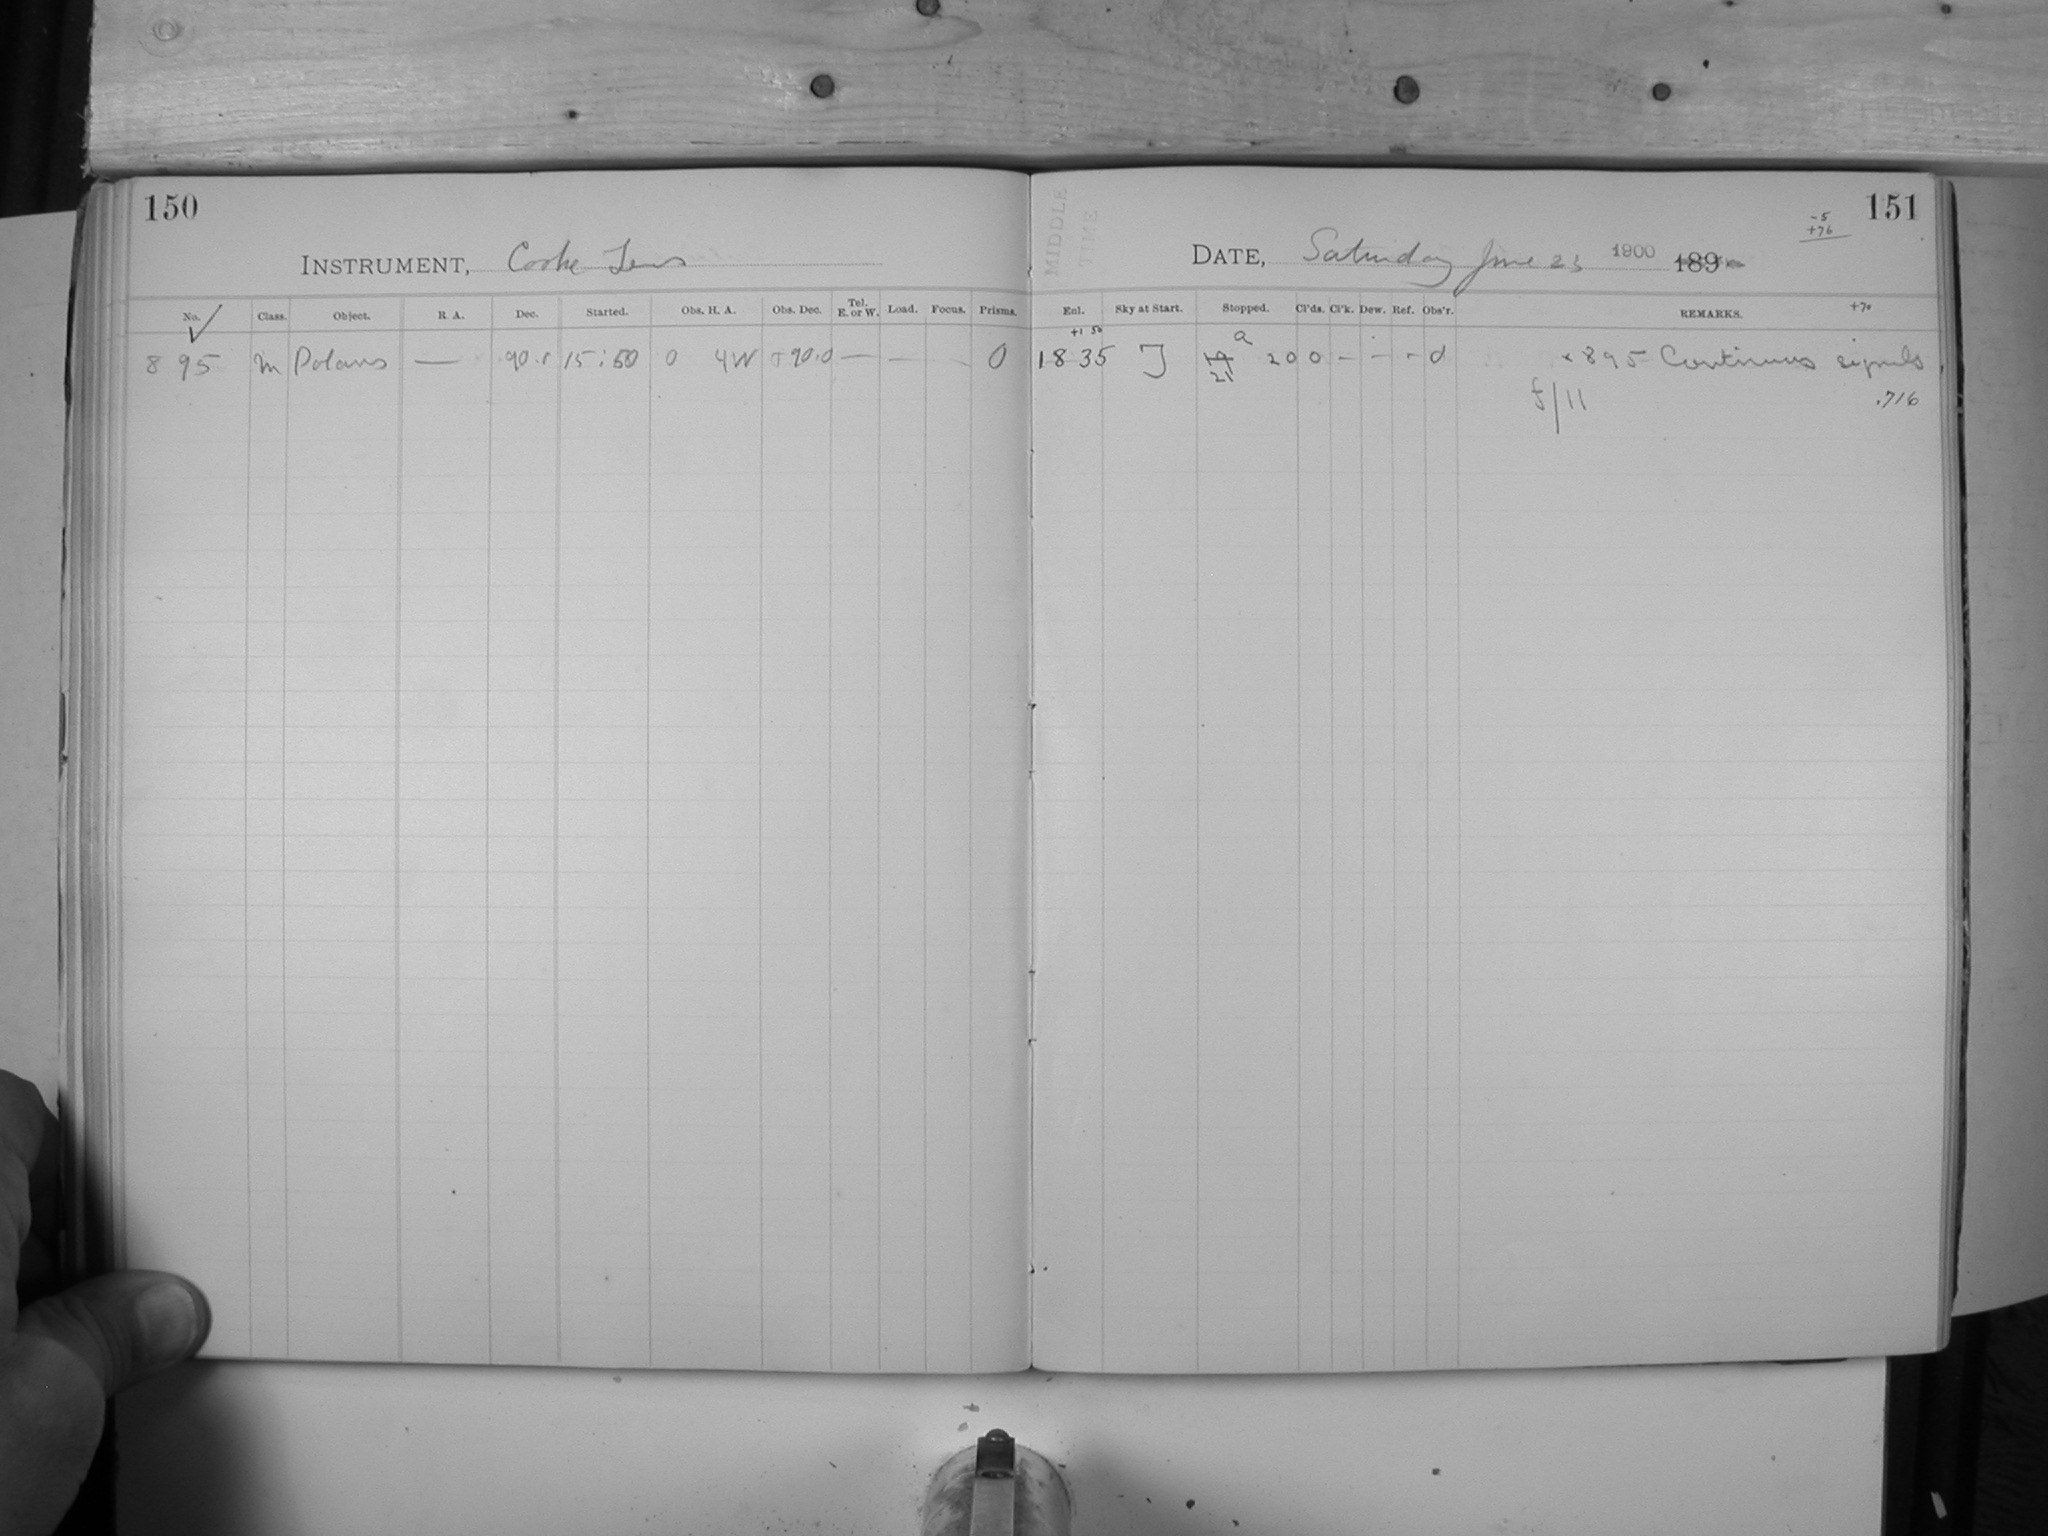 150
INSTRUMENT, Cooke Lens
No. Class. Object. R. A. Dec. Started. Obs. H. A. Obs. Dec. Tel. E. or W. Load. Focus. Prisms.
895 m Polaris — 90.0 15:50 0 4W +90.0 — — - 0
151
-5
+76
MIDDLE
TIME
DATE, Saturday June 23 1900 189
+70
Enl. Sky at Start. Stopped. Cl'ds. Cl'k. Dew. Ref. Obs'r. REMARKS.
+1 50
a
18 35 J 19 20 0 - - - 0 × 895 Continuous signals
21
f/11 .716